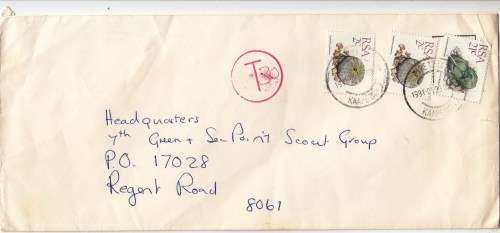 RSA 2c
RSA 2c
RSA 21c
T
KAAP
1991-01-2
KAAP
Headquarters
4th Green + Sea Point Scout Group
P.O. 17028
Regent Road
8061